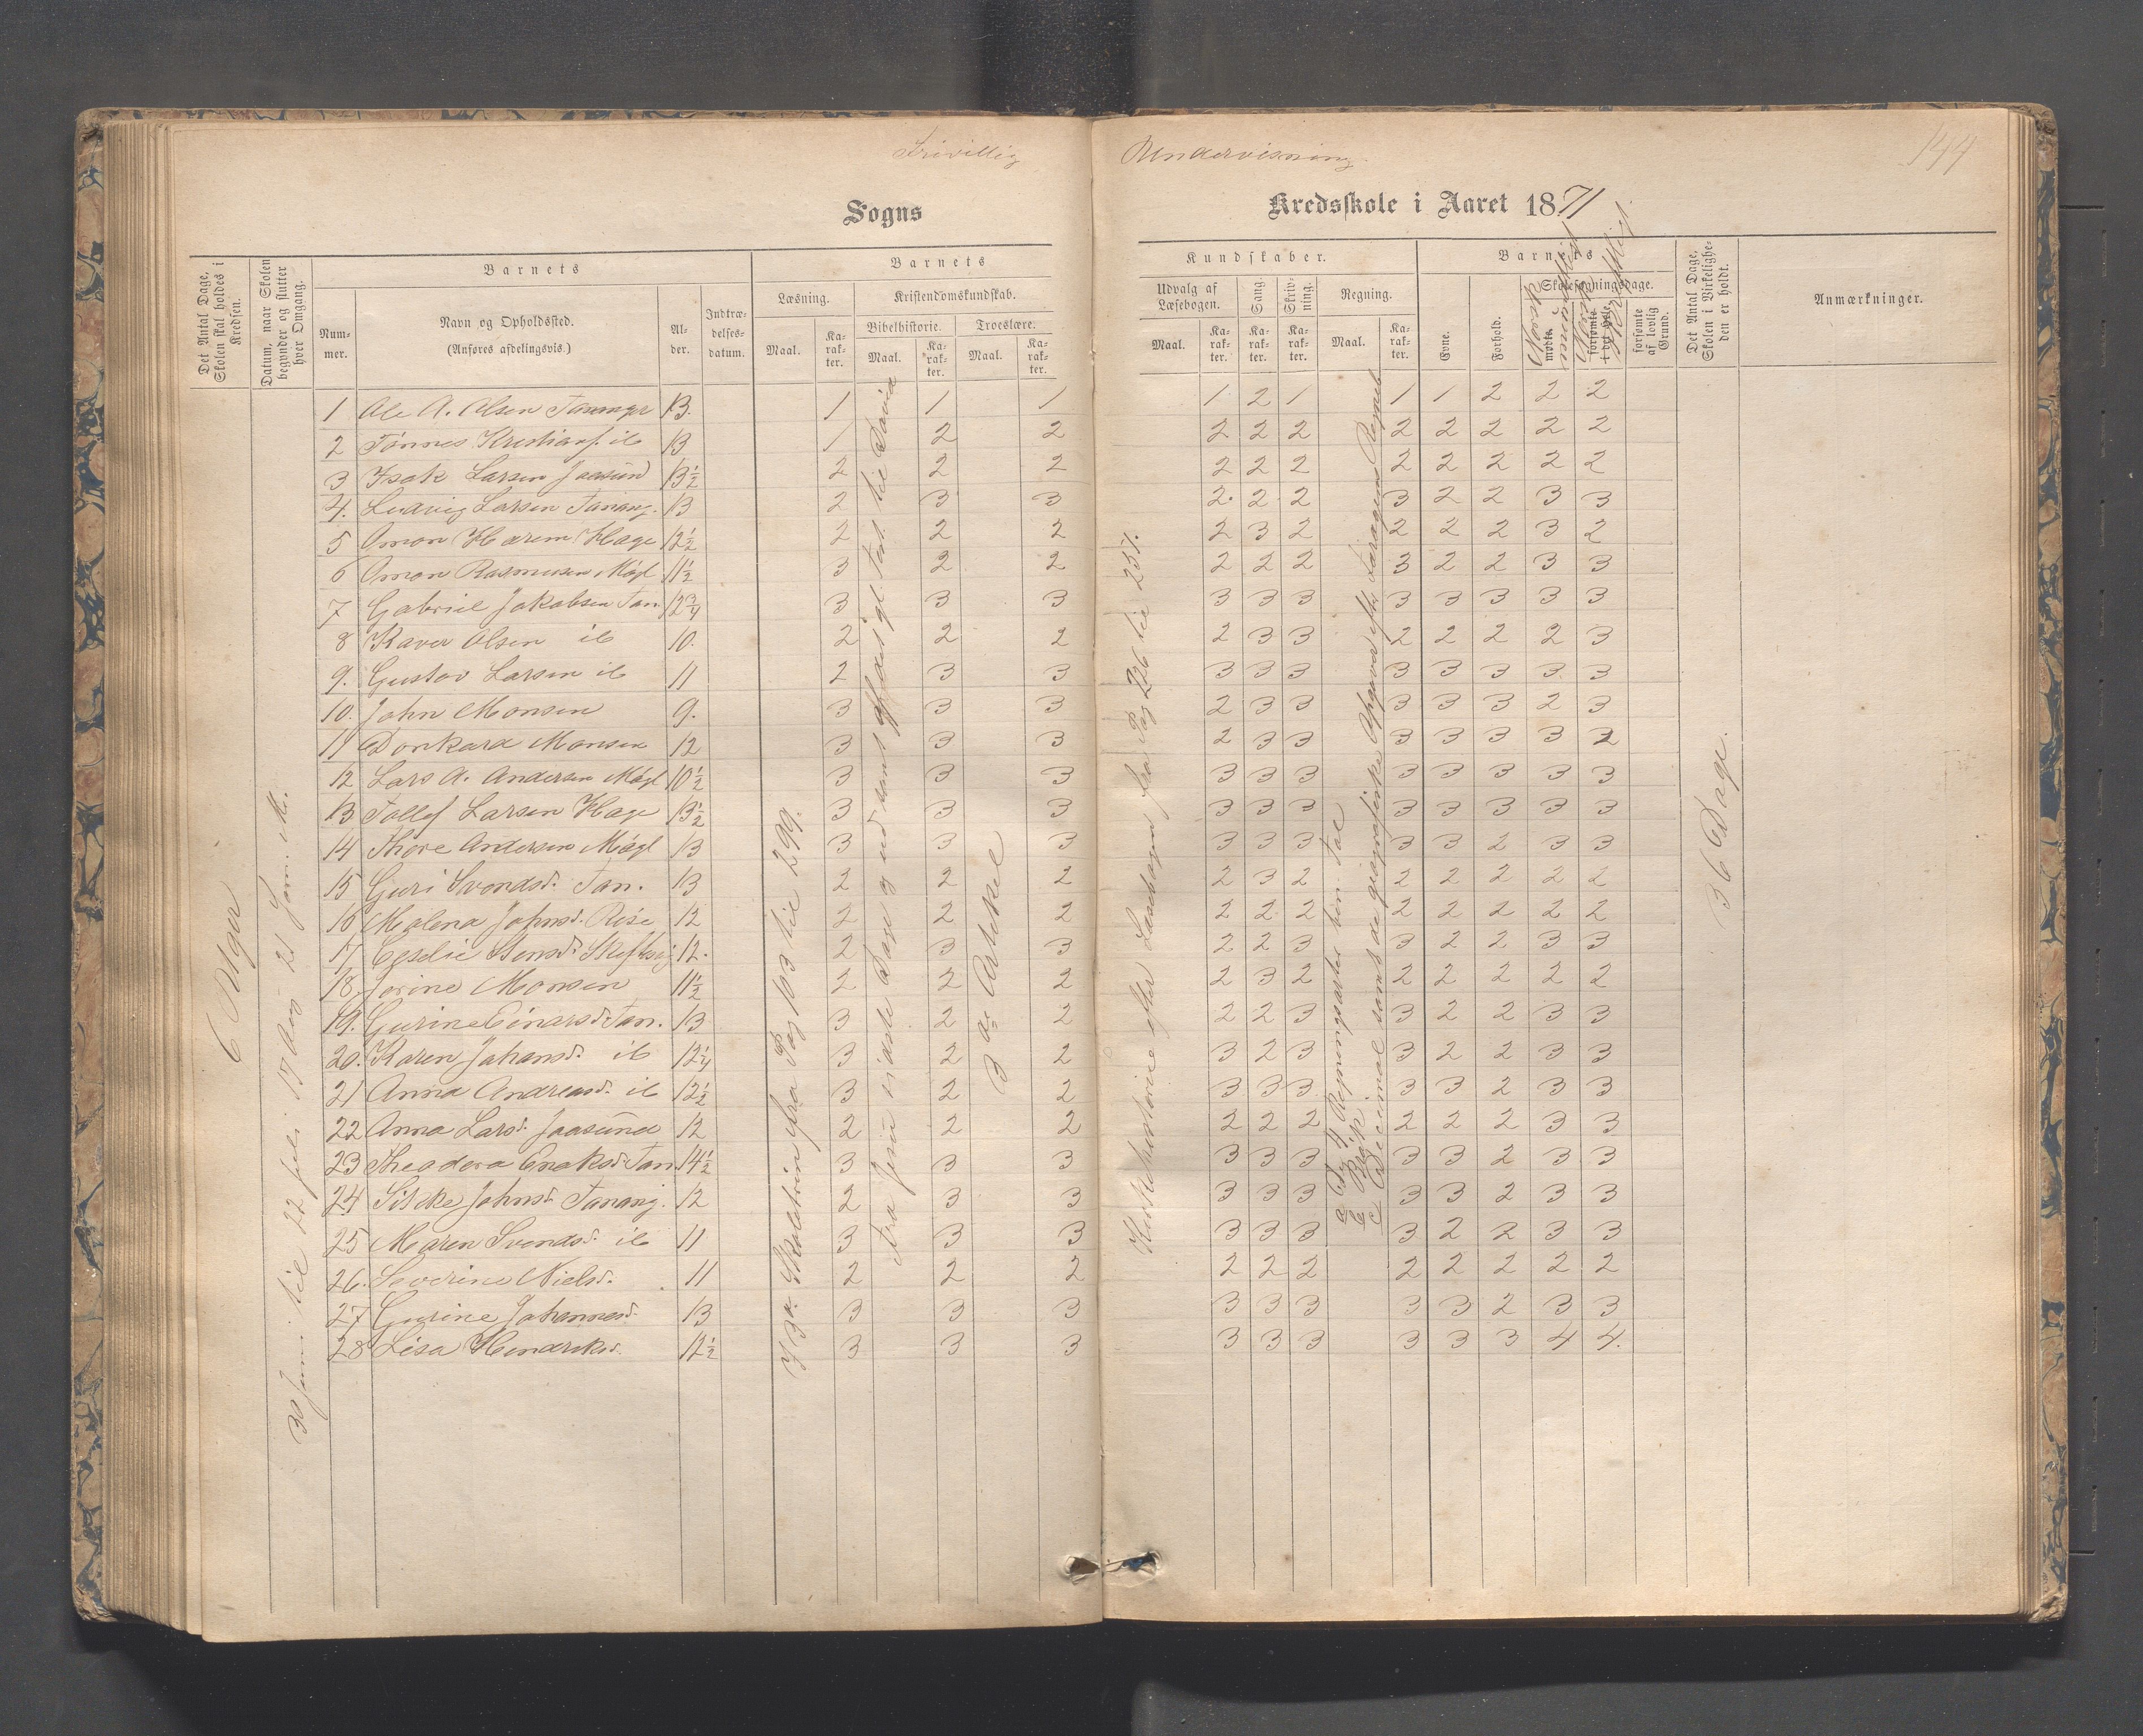 Frivillig Undervisning.
144
Sogns Kredsskole i Aaret 1871
Det Antal Dage, Skolen skal holdes i Kredsen.
Datum, naar Skolen begynder og slutter hver Omgang.
Barnets
Num-mer.
Navn og Opholdssted. (Anføres afdelingsvis.)
Al-der.
Indtræ-delses-datum.
Barnets
Læsning.
Maal.
Ka-rak-ter.
Kristendomskundskab.
Bibelhistorie.
Maal.
Ka-rak-ter.
Troeslære.
Maal.
Ka-rak-ter.
Kundskaber.
Udvalg af Læsebogen.
Maal.
Ka-rak-ter.
Sang.
Ka-rak-ter.
Skriv-ning.
Ka-rak-ter.
Regning.
Maal.
Ka-rak-ter.
Barnets
Evne.
Forhold.
Skolesøgningsdage.
mødte.
Norsk mundtligt
forsømte i det Hele.
Norsk skriftligt
forsømte af lovlig Grund.
Det Antal Dage, Skolen i Virkelighe-den er holdt.
Anmærkninger.
6 Uger
30 Juni til 22 juli 17 Aug 21 Sem. M.
I 3die Skoletrin fra Pag 103 til 299.
Fra Jesu sidste Dage og ud samt af det gl. Test. til David
3de Artikel
Kirkehistorie efter Læsebogen fra Pag 226 til 257.
a De 4 Regningsarter ben. Tal
b Brøk
c Decimal samt de geografiske Opgaver efter Regneb
36 Dage.
1 Ole A. Olsen Tananger 13. 1 1 1 1 2 1 1 1 2 2 2
2 Tönnes Kristians. ib 13 1 2 2 2 2 2 2 2 2 2 2
3 Isak Larsen Jaasund 13½ 2 2 2 2 2 2 2 2 2 2 2
4. Ludvig Larsen Tanang. 13 2 3 3 2. 2 2 3 2 2 3 3
5 Omon Harem Hage 12½ 2 2 2 2 3 2 2 2 2 3 2
6 Omon Rasmusen Mögl 11½ 3 2 2 2 2 2 3 2 2 3 3
7 Gabriel Jakobsen Tan. 12¾ 3 3 3 3 3 3 3 3 3 3 3
8 Xaver Olsen ib 10. 2 2 2 2 3 3 2 2 2 2 3
9. Gustav Larsen ib 11 2 3 3 3 3 3 3 3 3 3 3
10. John Monsen 9. 3 3 3 2 3 3 3 3 3 2 3
11 Donkard Monsen 12 3 3 3 2 3 3 3 3 3 3 2
12 Lars A. Andersen Mögl 10½ 3 3 3 3 3 3 3 3 3 3 3
13 Tollef Larsen Hage 13½ 3 3 3 3 3 3 3 3 3 3 3
14 Thore Andersen Mögl 13 3 3 3 3 3 3 3 3 2 3 3
15 Guri Svendsd. Tan. 13 2 2 2 2 3 2 2 2 2 2 2
16 Malena Johnsd. Risa 12 2 2 2 2 2 2 2 2 2 2 2
17 12. 2 3 3 2 2 3 3 2 2 3 3
18. Jorine Monsen 11½ 2 2 2 2 3 2 2 2 2 2 2
19. Gurine Einarsd. Tan. 13 3 2 2 2 2 3 3 2 2 3 3
20. Karen Johansd. ib 12¼ 3 2 2 3 2 3 3 2 2 3 3
21 Anna Andreasd. ib 12½ 3 2 2 3 3 3 3 3 2 3 3
22 Anna Larsd. Jaasund 12 2 2 2 2 2 2 2 2 2 3 3
23 Theodora Enoksd. Tan 14½ 3 3 3 3 3 3 3 3 2 3 3
24 Silcke Johnsd. Tanang. 12 2 3 3 3 3 3 3 3 2 3 3
25 Maren Svendsd. ib 11 3 3 3 3 3 3 3 2 2 3 3
26. Severine Nielsd. 11 2 2 2 2 2 2 2 2 2 2 2
27 Gurine Johannesd. 13 3 3 3 3 3 3 3 3 2 3 3
28 Lisa Hendriksd. 12½ 3 3 3 3 3 3 3 3 3 4 4.